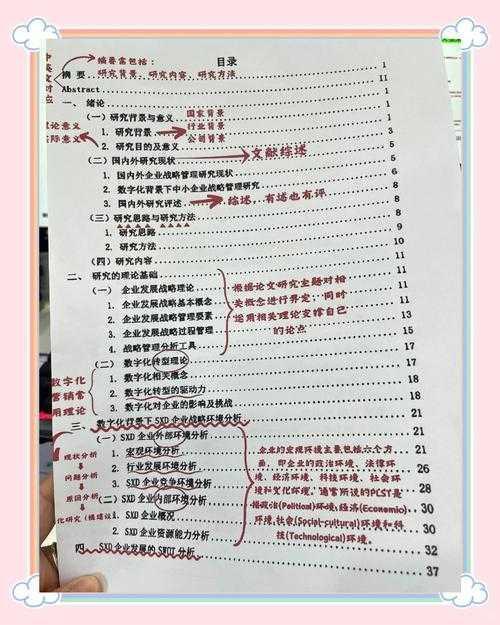 目录
摘要需包括：
研究背景、研究内容、研究方法
摘 要 1
Abstract 11
一、 绪论 1
（一）研究背景与意义 1
国家背景
1. 研究背景 1
行业背景
公司背景
2. 研究目的及意义 3
实际意义
（二）国内外研究现状 5
文献综述
1. 国内外企业战略管理研究现状 5
2. 数字化背景下中小企业战略管理研究 6
3. 国内外研究评述 8
综述，有述也有评
（三）研究思路与研究方法 8
1. 研究思路 8
2. 研究方法 9
（四）研究内容 10
二、 研究的理论基础 11
（一） 企业发展战略理论 11
1. 企业发展战略基本概念 11
2. 企业发展战略管理要素 11
3. 企业发展战略过程管理 13
4. 战略管理分析工具 15
根据论文研究主题对相
关概念进行界定，同时
运用相关理论支撑自己
的论点
（二） 数字化转型理论 17
1. 数字化相关概念 17
2. 数字化转型的驱动力 18
3. 数字化对企业的影响及挑战 18
数字化
营销常
用理论
三、 数字化背景下 SXD 企业战略环境分析 21
（一）SXD 企业外部环境分析 21
1. 宏观环境分析 21
2. 行业发展环境分析 26
3. SXD 企业竞争环境分析 28
（二）SXD 企业内部环境分析 30
1. SXD 企业概况 30
2. SXD 企业资源能力分析 32
四、 SXD 企业发展的 SWOT 分析 37
现状分析
问题分析
原因分析
企业的宏观环境主要包括六个方
面，即企业的政治环境、法律环
境、经济环境、科技环境、社会环
境和文化环境。通常所说的PCST是
指政治(Political)环境、经济(Economic)
环境、社会(Social-cultural)环境和科
技(Technological)环境。